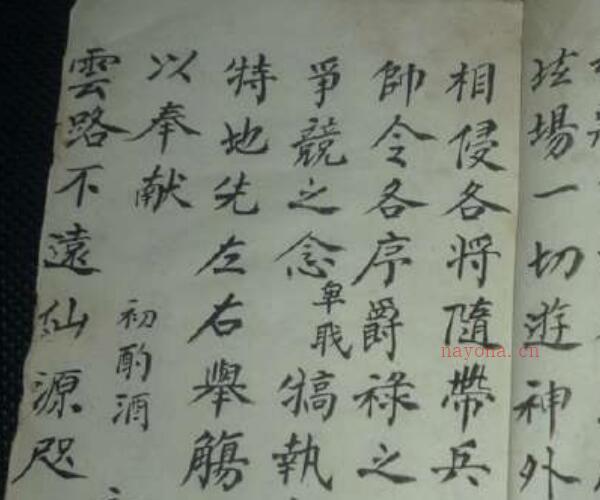 坛場一切遊神外
相侵各将隨帶兵
帥令各序爵禄之
爭競之念卑職犒執
特地先左右舉觴
以奉献
初酌酒
雲路不遠仙源咫
nayona.cn